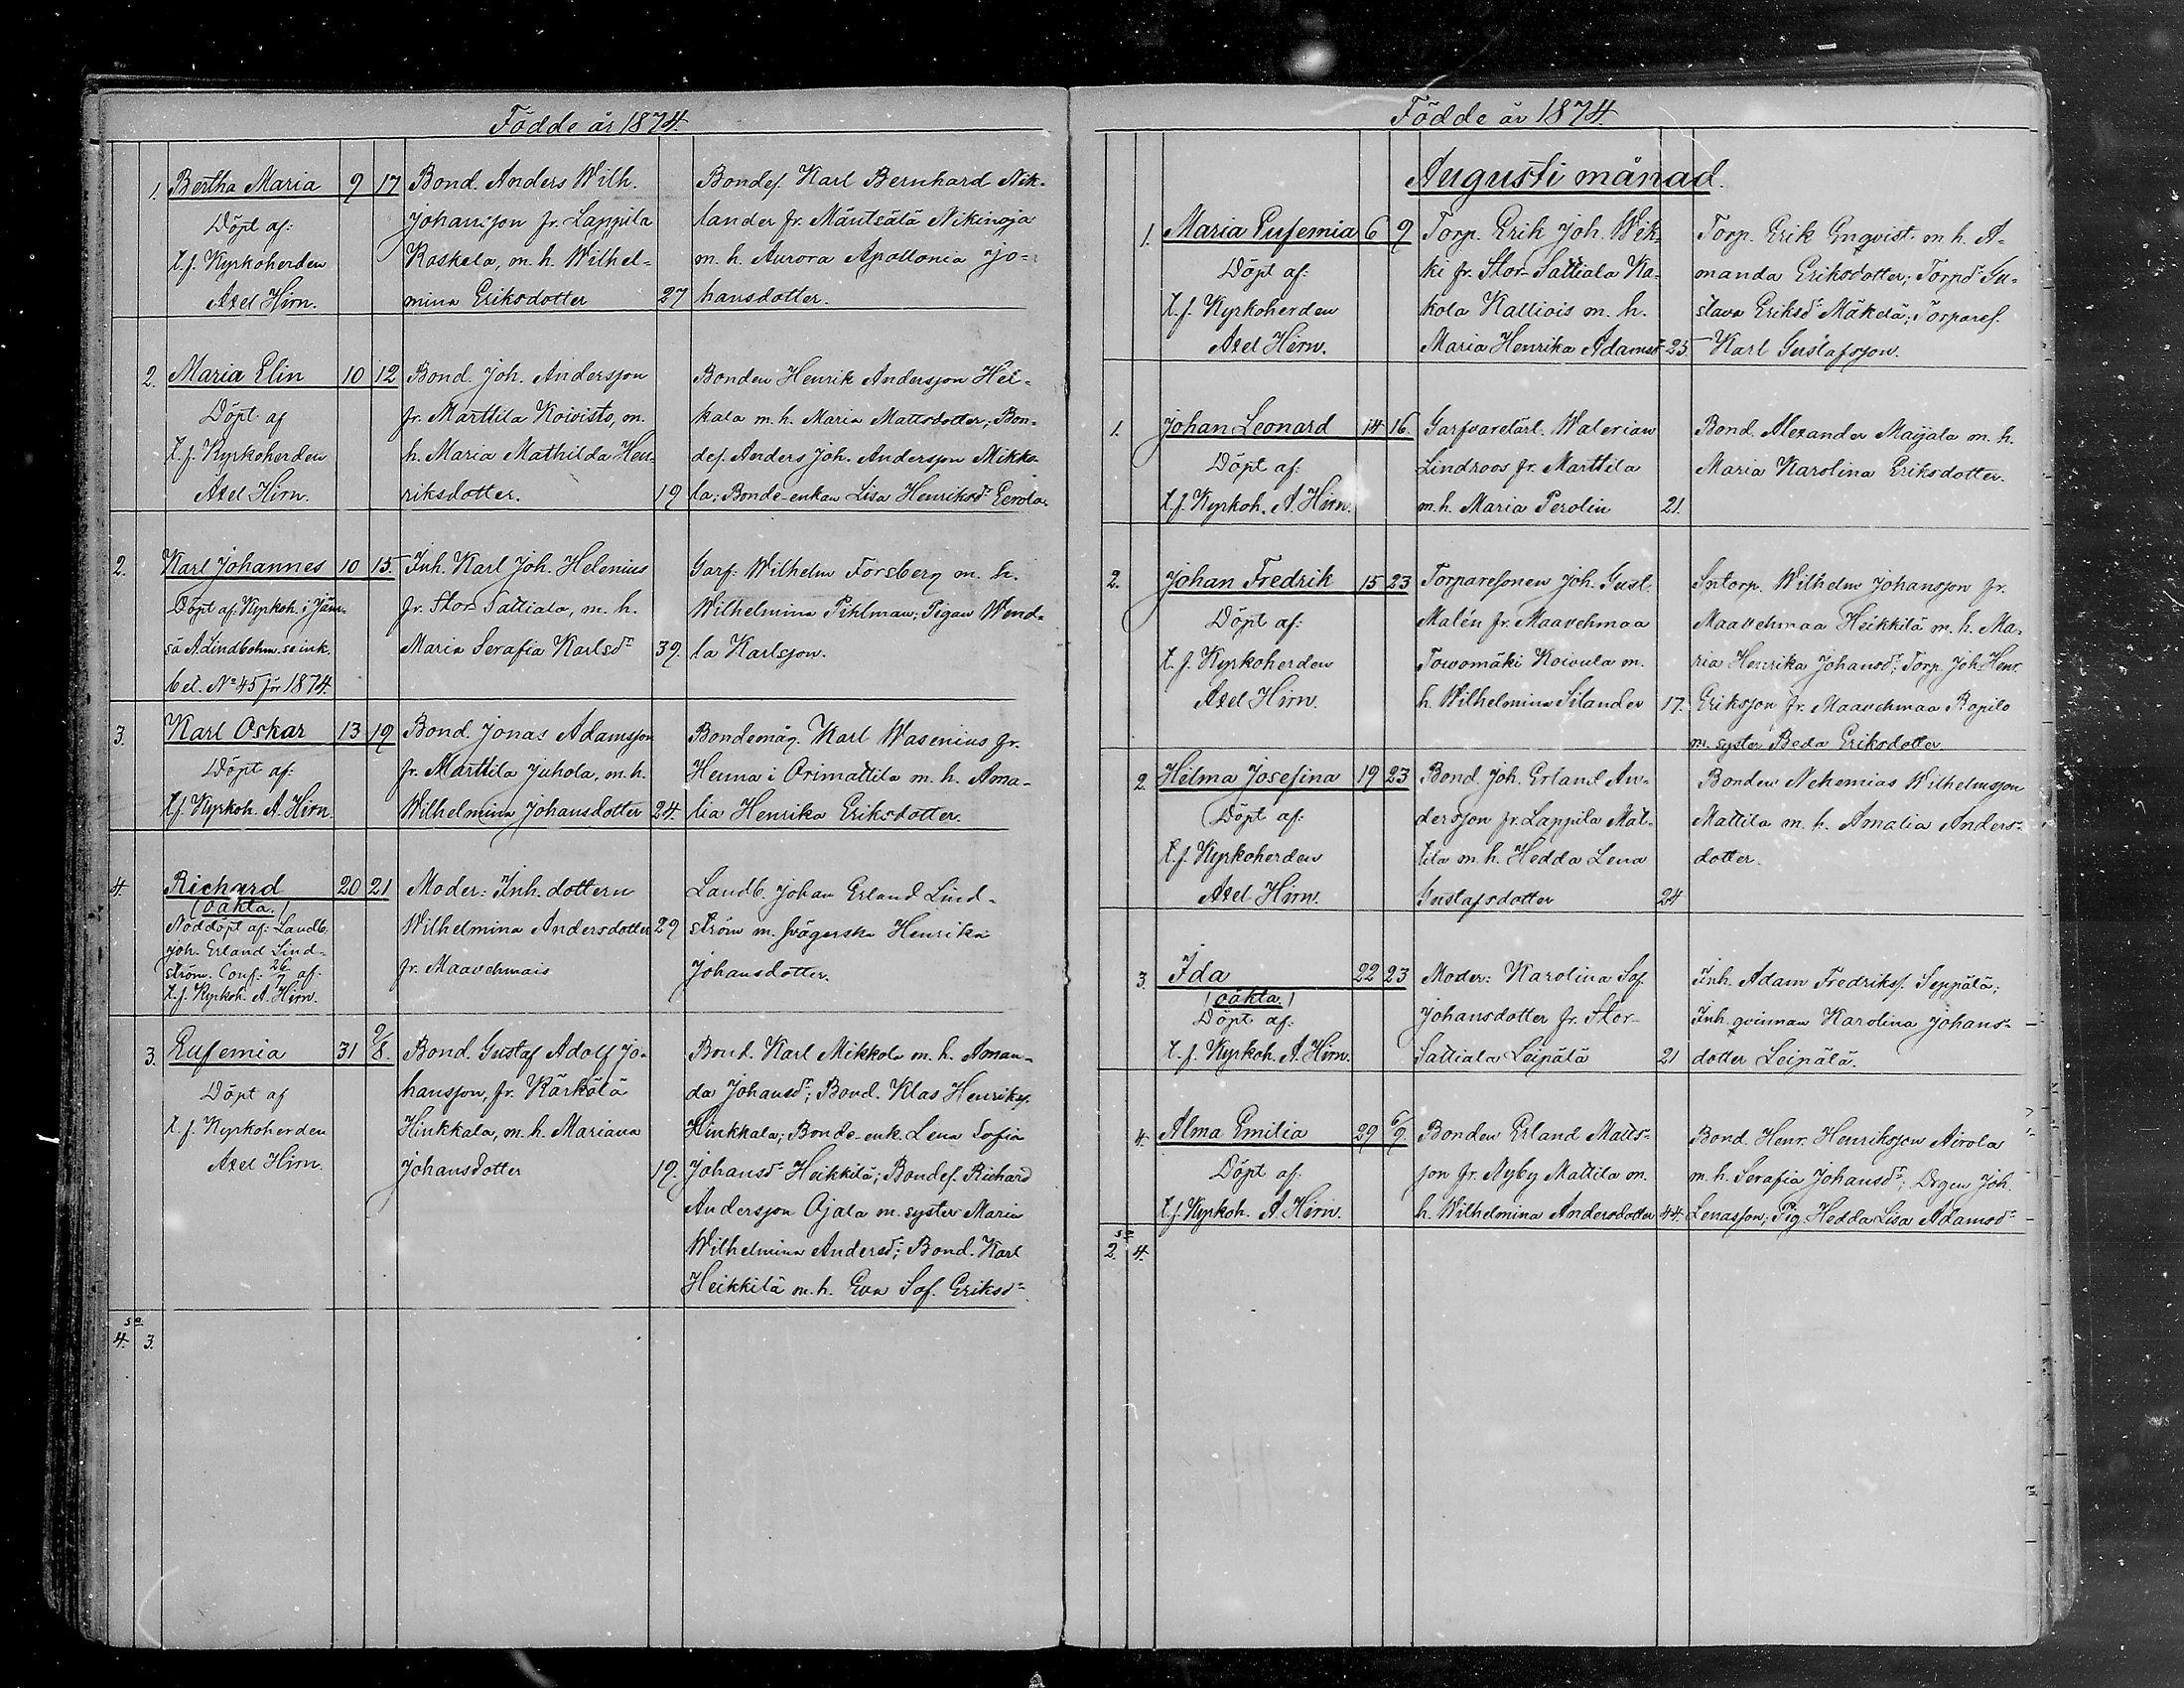 Födde år 1874.
1. Bertha Maria 9 17 Bond. Anders Wilh. Bondes. Karl Bernhard Nik-
Döpt af: Johansson fr. Lappila lander fr. Mäntsälä Nikinoja
t.f. Kyrkoherden Koskela, m. h. Wilhel- m. h. Aurora Apollonia Jo-
Axel Hirn. mina Eriksdotter 27 hansdotter.
2. Maria Elin 10 12 Bond. Joh. Andersson Bonden Henrik Andersson Hei-
Döpt af fr. Marttila Koivisto, m. kala m. h. Maria Mattsdotter; Bon-
t.f. Kyrkoherden h. Maria Mathilda Hen- des. Anders Joh. Andersson Mikko-
Axel Hirn. riksdotter. 19 la; Bonde-enkan Lisa Henriksdr Eerola.
2. Karl Johannes 10 15. Inh. Karl Joh. Helenius Garf. Wilhelm Forsberg m. h.
Döpt af: Kyrkoh. i Jäm- fr. Stor Sattiala, m. h. Wilhelmina Pihlman; Pigan Wend-
sä A Lindbohm. se ink. Maria Serafia Karlsdr 39. la Karlsson.
bet. No 45 för 1874.
3. Karl Oskar 13 19 Bond. Jonas Adamsson Bondemåg. Karl Wasenius fr.
Döpt af: fr. Marttila Juhola, m. h. Henna i Orimattila m. h. Ama-
t.f. Kyrkoh. A. Hirn. Wilhelmina Johansdotter 24. lia Henrika Eriksdotter.
4. Richard 20 21 Moder: Inh. dottern Landb. Johan Erland Lind-
(oäkta.)
Nöddöpt af: Landb. Wilhelmina Andersdotter 29 ström m. svägerska Henrika
Joh. Erland Lind-
ström. Conf: 26/7 af: fr. Maavehmais Johansdotter.
t.f. Kyrkoh. A. Hirn.
3. Eufemia 31 9/8. Bond. Gustaf Adolf Jo- Bond. Karl Mikkola m. h. Aman-
Döpt af hansson, fr. Kärkölä da Johansdr; Bond. Klas Henriks.
t.f. Kyrkoherden Hinkkala, m. h. Mariana Hinkkala; Bonde-enk. Lena Sofia
Axel Hirn. Johansdotter 19. Johansdr Heikkilä; Bondes. Richard
Andersson Ojala m. syster Maria
Wilhelmina Andersdr; Bond. Karl
Heikkilä m. h. Eva Sof. Eriksdr.
sa
4. 3.
Födde år 1874.
Augusti månad.
1. Maria Eufemia 6 9 Torp. Erik Joh. Wik- Torp. Erik Enqvist m. h. A-
Döpt af: ki fr. Stor-Sattiala Ka- manda Eriksdotter; Torpdr Gu-
t.f. Kyrkoherden kola Kalliois m. h. stava Eriksdr Mäkelä; Torpares.
Axel Hirn. Maria Henrika Adamsdr 25. Karl Gustafsson.
1. Johan Leonard 14 16. Garfvarelärl. Walerian Bond. Alexander Maijala m. h.
Döpt af: Lindroos fr. Marttila Maria Karolina Eriksdotter.
t.f. Kyrkoh. A. Hirn. m. h. Maria Perolin 21.
2. Johan Fredrik 15 23 Torparesonen Joh. Gust. Sptorp. Wilhelm Johansson fr.
Döpt af: Malén fr. Maavehmaa Maavehmaa Heikkilä m. h. Ma-
t.f. Kyrkoherden Towomäki Koivula m. ria Henrika Johansdr; Torp. Joh. Henr.
Axel Hirn. h. Wilhelmina Silander 17. Eriksson fr. Maavehmaa Ropilo
m. syster Beda Eriksdotter
2. Hilma Josefina 19 23 Bond. Joh. Erland An- Bonden Nehemias Wilhelmsson
Döpt af: dersson fr. Lappila Mat- Mattila m. h. Amalia Anders-
t.f. Kyrkoherden tila m. h. Hedda Lena dotter.
Axel Hirn. Gustafsdotter 24
3. Ida 22 23 Moder: Karolina Sof. Inh. Adam Fredriks. Seppälä;
(oäkta.)
Döpt af: Johansdotter fr. Stor- Inh. qvinnan Karolina Johans-
t.f. Kyrkoh. A. Hirn. Sattiala Leipälä 21 dotter Leipälä.
4. Alma Emilia 29 6/9. Bonden Erland Matts- Bond. Henr. Henriksson Airola
Döpt af. son fr. Nyby Mattila m. m. h. Serafia Johansdr; Drgen Joh.
t.f. Kyrkoh. A Hirn. h. Wilhelmina Andersdotter 44. Lenasson; Pig. Hedda Lisa Adamsdr
sa
2. 4.